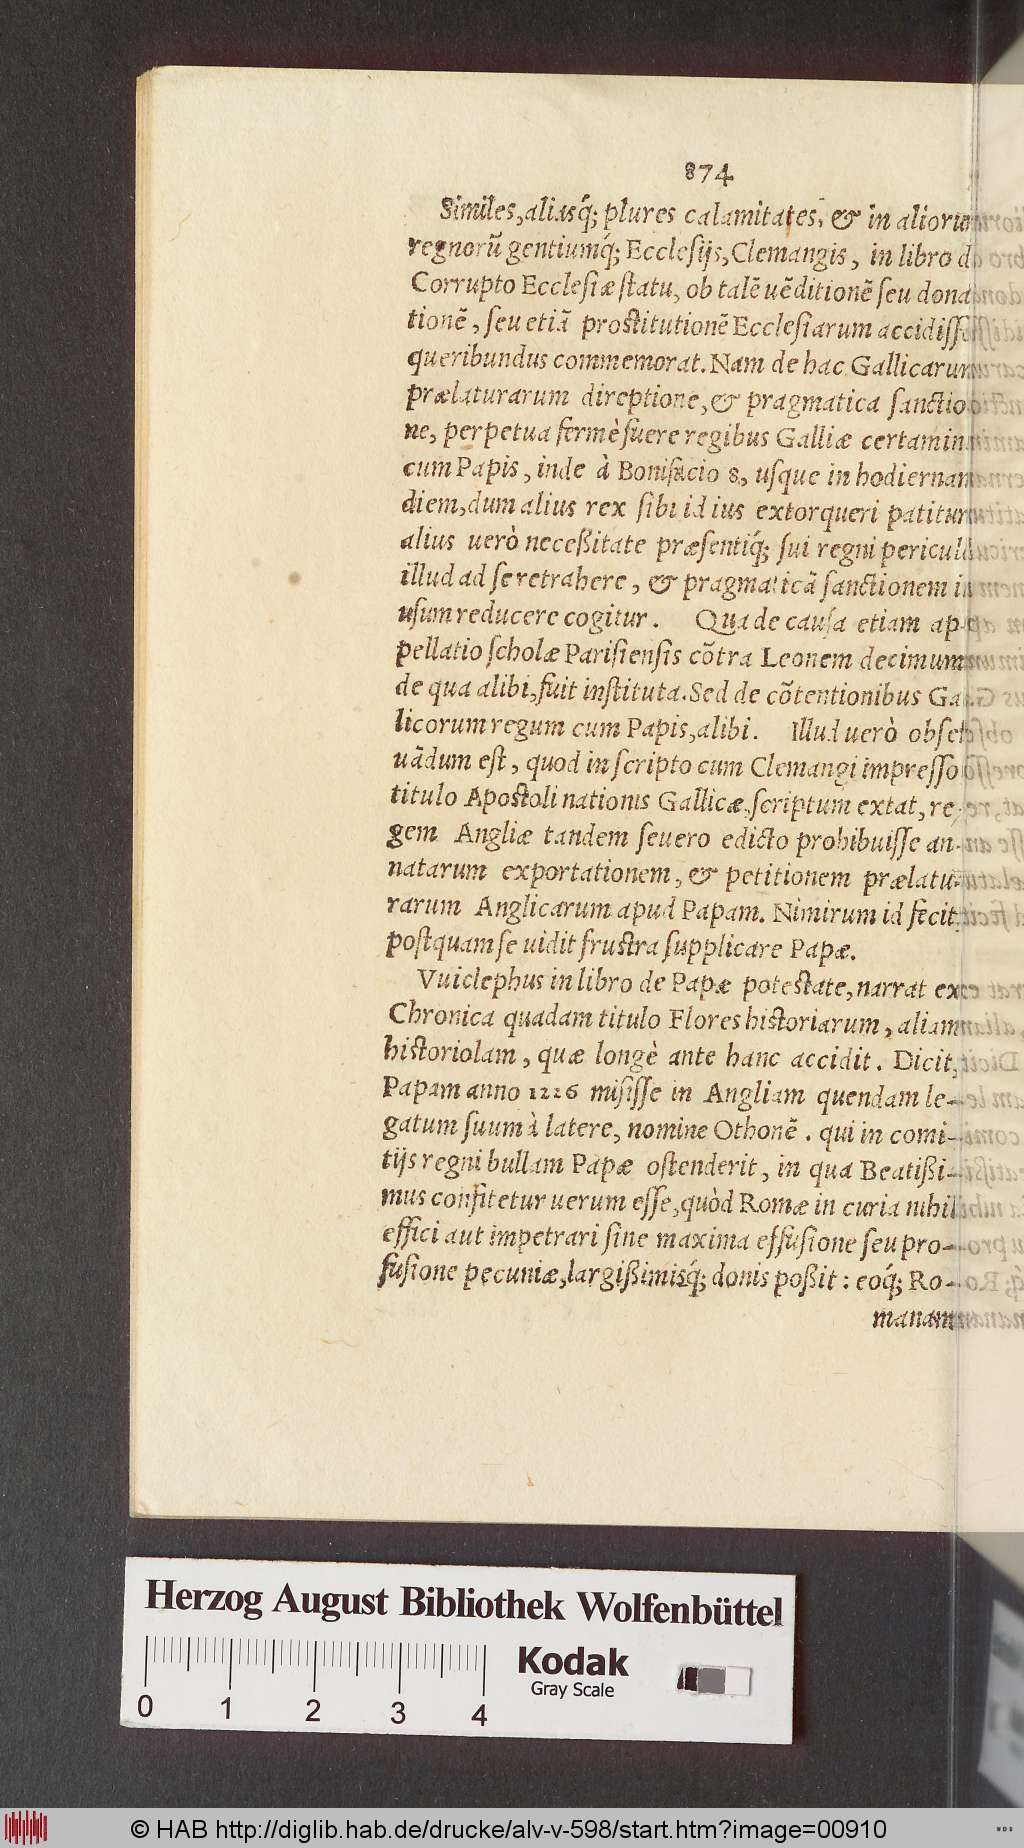 874
Similes, aliasq́; plures calamitates, & in aliorum
regnorũ gentiumq́; Ecclesijs, Clemangis, in libro de
Corrupto Ecclesiæ statu, ob talẽ uẽditionẽ seu dona
tionẽ, seu etiã prostitutionẽ Ecclesiarum accidisse
queribundus commemorat. Nam de hac Gallicarum
prælaturarum direptione, & pragmatica sanctio
ne, perpetua fermè fuere regibus Galliæ certamina
cum Papis, inde à Bonifacio 8, usque in hodiernam
diem, dum alius rex sibi id ius extorqueri patitur:
alius uerò neceßitate præsentiq́; sui regni periculo
illud ad se retrahere, & pragmaticã sanctionem in
usum reducere cogitur. Qua de causa etiam ap-
pellatio scholæ Parisiensis cõtra Leonem decimum
de qua alibi, fuit instituta. Sed de cõtentionibus Gal
licorum regum cum Papis, alibi. Illud uerò obser
uãdum est, quod in scripto cum Clemangi impresso
titulo Apostoli nationis Gallicæ, scriptum extat, re,
gem Angliæ tandem seuero edicto prohibuisse an-
natarum exportationem, & petitionem prælatu-
rarum Anglicarum apud Papam. Nimirum id fecit,
postquam se uidit frustra supplicare Papæ.
Vuiclephus in libro de Papæ potestate, narrat ex
Chronica quadam titulo Flores historiarum, aliam
historiolam, quæ longè ante hanc accidit. Dicit,
Papam anno 1226 misisse in Angliam quendam le-
gatum suum à latere, nomine Othonẽ. qui in comi-
tijs regni bullam Papæ ostenderit, in qua Beatißi-
mus confitetur uerum esse, quòd Romæ in curia nihil
effici aut impetrari sine maxima effusione seu pro-
fusione pecuniæ, largißimisq́; donis poßit: eoq́; Ro-
manam
Herzog August Bibliothek Wolfenbüttel
0 1 2 3 4
Kodak
Gray Scale
© HAB http://diglib.hab.de/drucke/alv-v-598/start.htm?image=00910